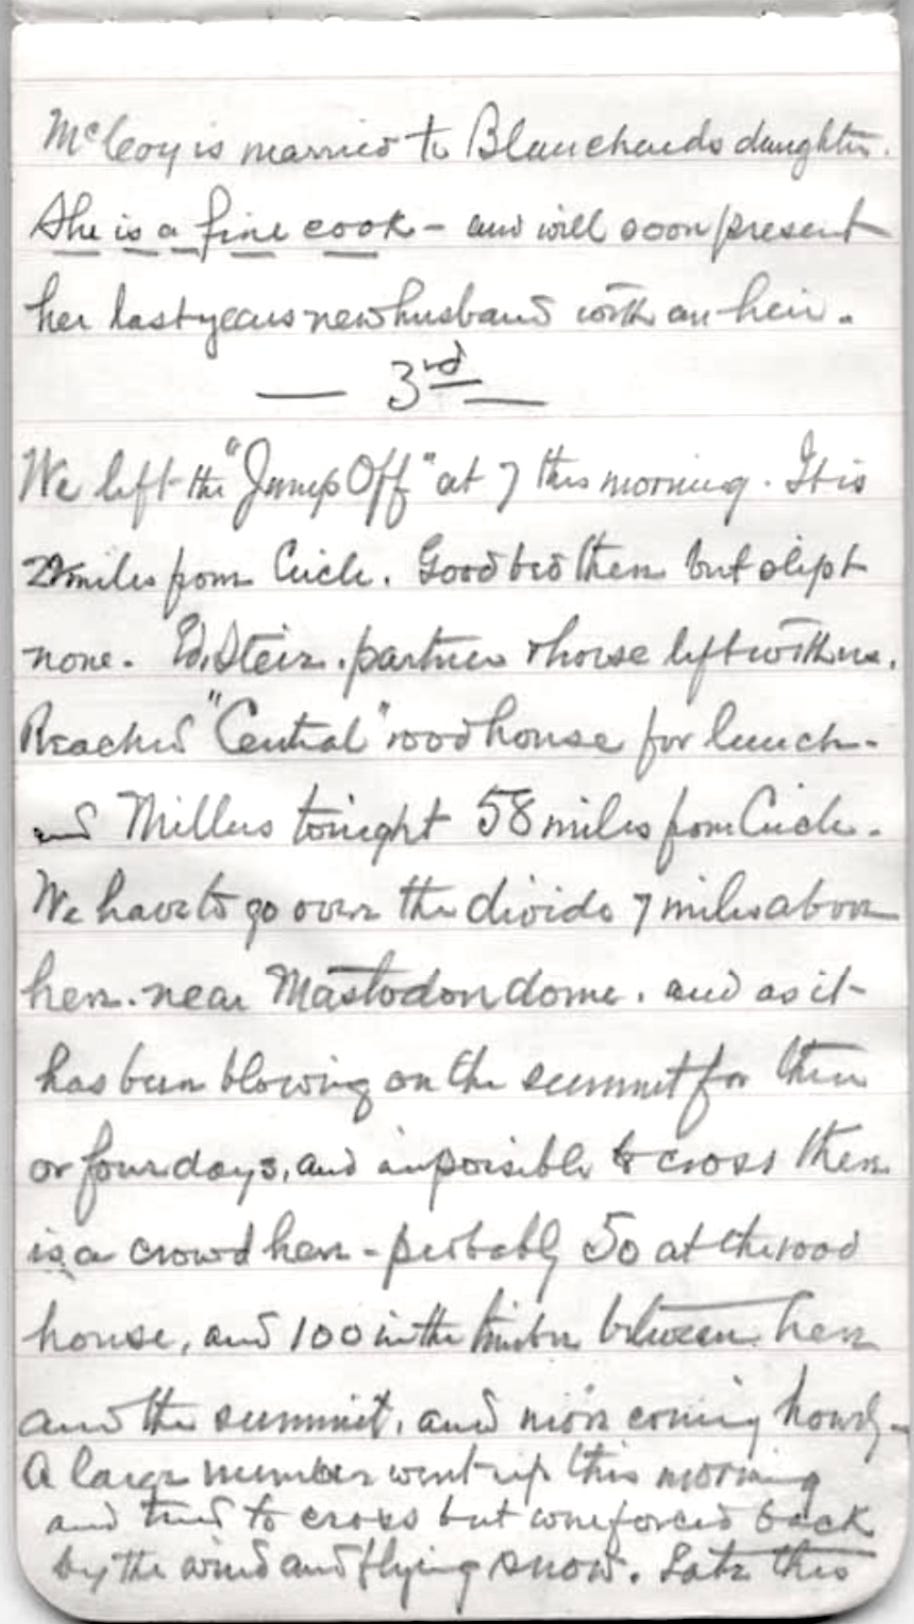 McCoy is married to Blanchards daughter.
She is a fine cook - and will soon present
her last years new husband with an heir.
— 3rd —
We left the "Jump Off" at 7 this morning. It is
miles from Circle. Good bed there but slept
none. Ed. Stein. partner & horse left with us.
Reached "Central" road house for lunch-
and Millers tonight 58 miles from Circle.
We have to go over the divide 7 miles above
here. near Mastodon dome. and as it
has been blowing on the summit for three
or four days, and impossible to cross there
is a crowd here - probably 50 at the road
house, and 100 in the timber between here
and the summit, and more coming hourly-
A large number went up this morning
and tried to cross but were forced back
by the wind and flying snow. Late this